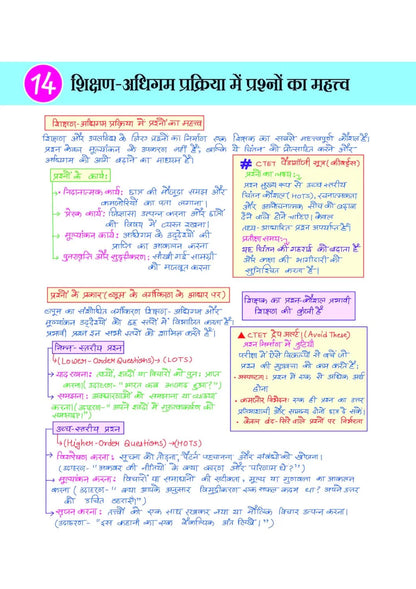 14 शिक्षण-अधिगम प्रक्रिया में प्रश्नों का महत्त्व
शिक्षण-अधिगम प्रक्रिया में प्रश्नों का महत्त्व
शिक्षण और उपलब्धि के लिए प्रश्नों का निर्माण एक शिक्षक का सबसे महत्त्वपूर्ण कौशल है।
प्रश्न केवल मूल्यांकन के उपकरण नहीं हैं, बल्कि ये चिंतन को प्रोत्साहित करने और
अधिगम को आगे बढ़ाने का माध्यम हैं।
प्रश्नों के कार्य:
निदानात्मक कार्य: छात्र की मौजूदा समझ और
कमजोरियों का पता लगाना।
प्रेरक कार्य: जिज्ञासा उत्पन्न करना और छात्रों
को विषय में व्यस्त रखना।
मूल्यांकन कार्य: अधिगम के उद्देश्यों की
प्राप्ति का आकलन करना
पुनरावृत्ति और सुदृढीकरण: सीखी गई सामग्री
को मजबूत करना
# CTET पेडागॉजी सूत्र (कीवर्ड्स)
प्रश्नों का लक्ष्य:
प्रश्न मुख्य रूप से उच्च स्तरीय
चिंतन कौशल (HOTS), रचनात्मकता
और आलोचनात्मक सोच को बढ़ावा
देने वाले होने चाहिए। केवल
तथ्य-आधारित प्रश्न अपर्याप्त हैं।
प्रतीक्षा समय:
यह चिंतन की गहराई को बढ़ाता है
और कक्षा की भागीदारी को
सुनिश्चित करता है।
प्रश्नों के प्रकार (ब्लूम के वर्गीकरण के आधार पर)
ब्लूम का संशोधित वर्गीकरण शिक्षण-अधिगम और
मूल्यांकन उद्देश्यों को छह स्तरों में विभाजित करता है।
प्रभावी प्रश्न इन सभी स्तरों को शामिल करते हैं।
शिक्षक का प्रश्न-कौशल प्रभावी
शिक्षण की कुंजी है
निम्न-स्तरीय प्रश्न
(Lower-Order Questions) → (LOTS)
याद रखना: तथ्यों, शब्दों या विचारों को पुनः प्राप्त
करना।
समझना:
▲ CTET ट्रैप अलर्ट! (Avoid These)
प्रश्न निर्माण में त्रुटियाँ
परीक्षा में ऐसे विकल्पों से बचें जो
प्रश्न की गुणवत्ता को कम करते हैं:
अस्पष्टता: प्रश्न में एक से अधिक अर्थ
होना
केवल
उच्च-स्तरीय प्रश्न
(Higher-Order Questions) → (HOTS)
विश्लेषण करना: सूचना को तोड़ना, पैटर्न पहचानना और संबंधों को खोजना।
(उदाहरण- "अकबर की नीतियों के क्या कारण और परिणाम थे?")
मूल्यांकन करना: विचारों या समाधानों की सटीकता, मूल्य या गुणवत्ता का आकलन
करना (उदाहरण- "क्या आपके अनुसार विमुद्रीकरण एक सफल कदम था? अपने उत्तर
को उचित ठहराएँ।")
सृजन करना: तत्वों को एक साथ रखकर नया या मौलिक विचार उत्पन्न करना।
(उदाहरण- "इस कहानी का एक वैकल्पिक अंत लिखें।")